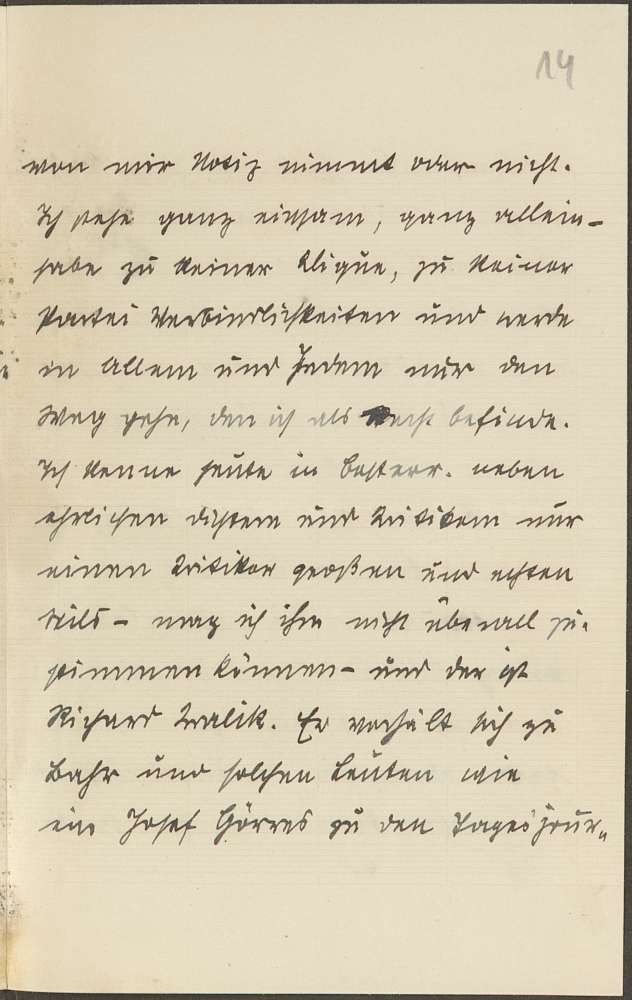 14
von mir Notiz nimmt oder nicht.
Ich stehe ganz einsam, ganz allein –
habe zu keiner Klique, zu keiner
Partei Verbindlichkeiten und werde
in Allem und Jedem nur den
Weg gehe, den ich als Recht befinde.
Ich kenne heute in Oesterr. neben
ehrlichen Dichtern und Kritikern nur
einen Kritiker großen und echten
Stils – mag ich ihm nicht überall zu-
stimmen können – und der ist
Richard Kralik. Er verhält sich zu
Bahr und solchen Leuten wie
ein Josef Görres zu den Tagesjour-